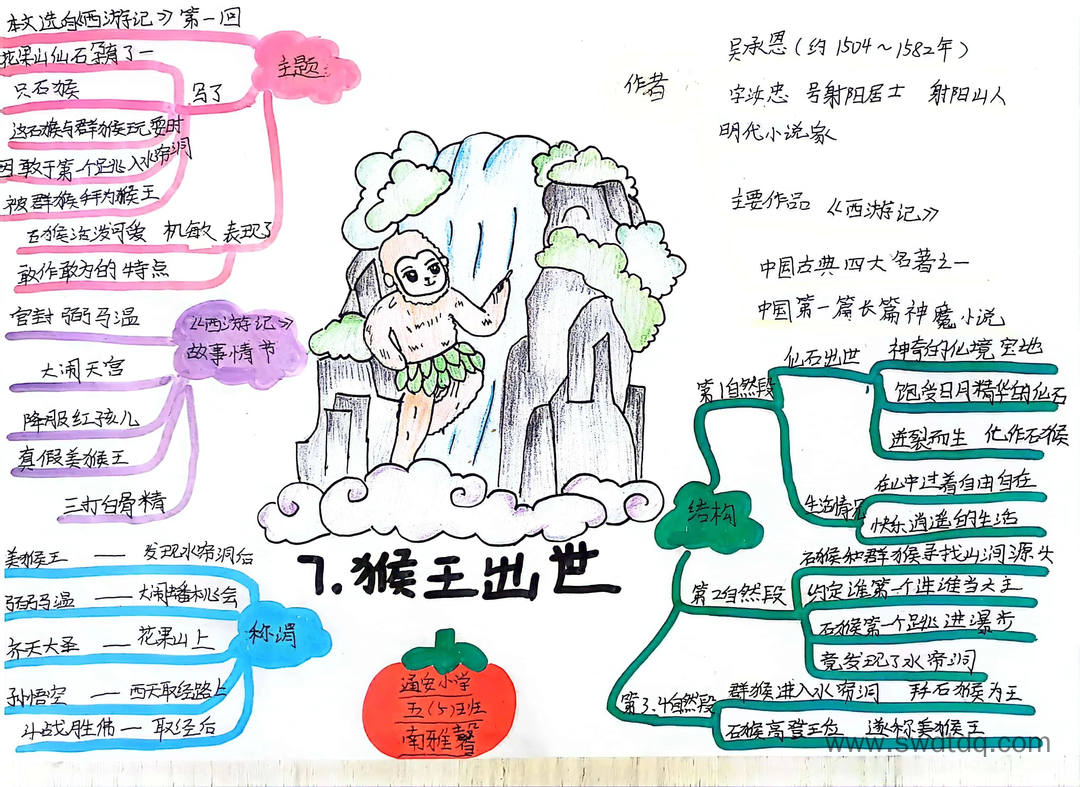 本文选自《西游记》第一回
花果山仙石孕育了一
只石猴
写了
这石猴与群猴玩耍时
因敢于第一个跳入水帘洞
被群猴拜为猴王
石猴活泼可爱 机敏 表现了
敢作敢为的特点
主题
官封弼马温
大闹天宫
降服红孩儿
真假美猴王
三打白骨精
《西游记》
故事情节
美猴王 —— 发现水帘洞后
弼马温 —— 大闹蟠桃会
齐天大圣 —— 花果山上
孙悟空 —— 西天取经路上
斗战胜佛 — 取经后
称谓
作者
吴承恩(约1504~1582年)
字汝忠 号射阳居士 射阳山人
明代小说家
主要作品 《西游记》
中国古典四大名著之一
中国第一篇长篇神魔小说
7.猴王出世
通安小学
五(5)班
南雅馨
结构
第1自然段
仙石出世
神奇的仙境宝地
饱受日月精华的仙石
迸裂而生 化作石猴
生活情况
在山中过着自由自在
快乐逍遥的生活
第2自然段
石猴和群猴寻找山涧源头
约定谁第一个进谁当大王
石猴第一个跳进瀑步
竟发现了水帘洞
第3.4自然段
群猴进入水帘洞 拜石猴为王
石猴高登王位 遂称美猴王
www.swdtdq.com